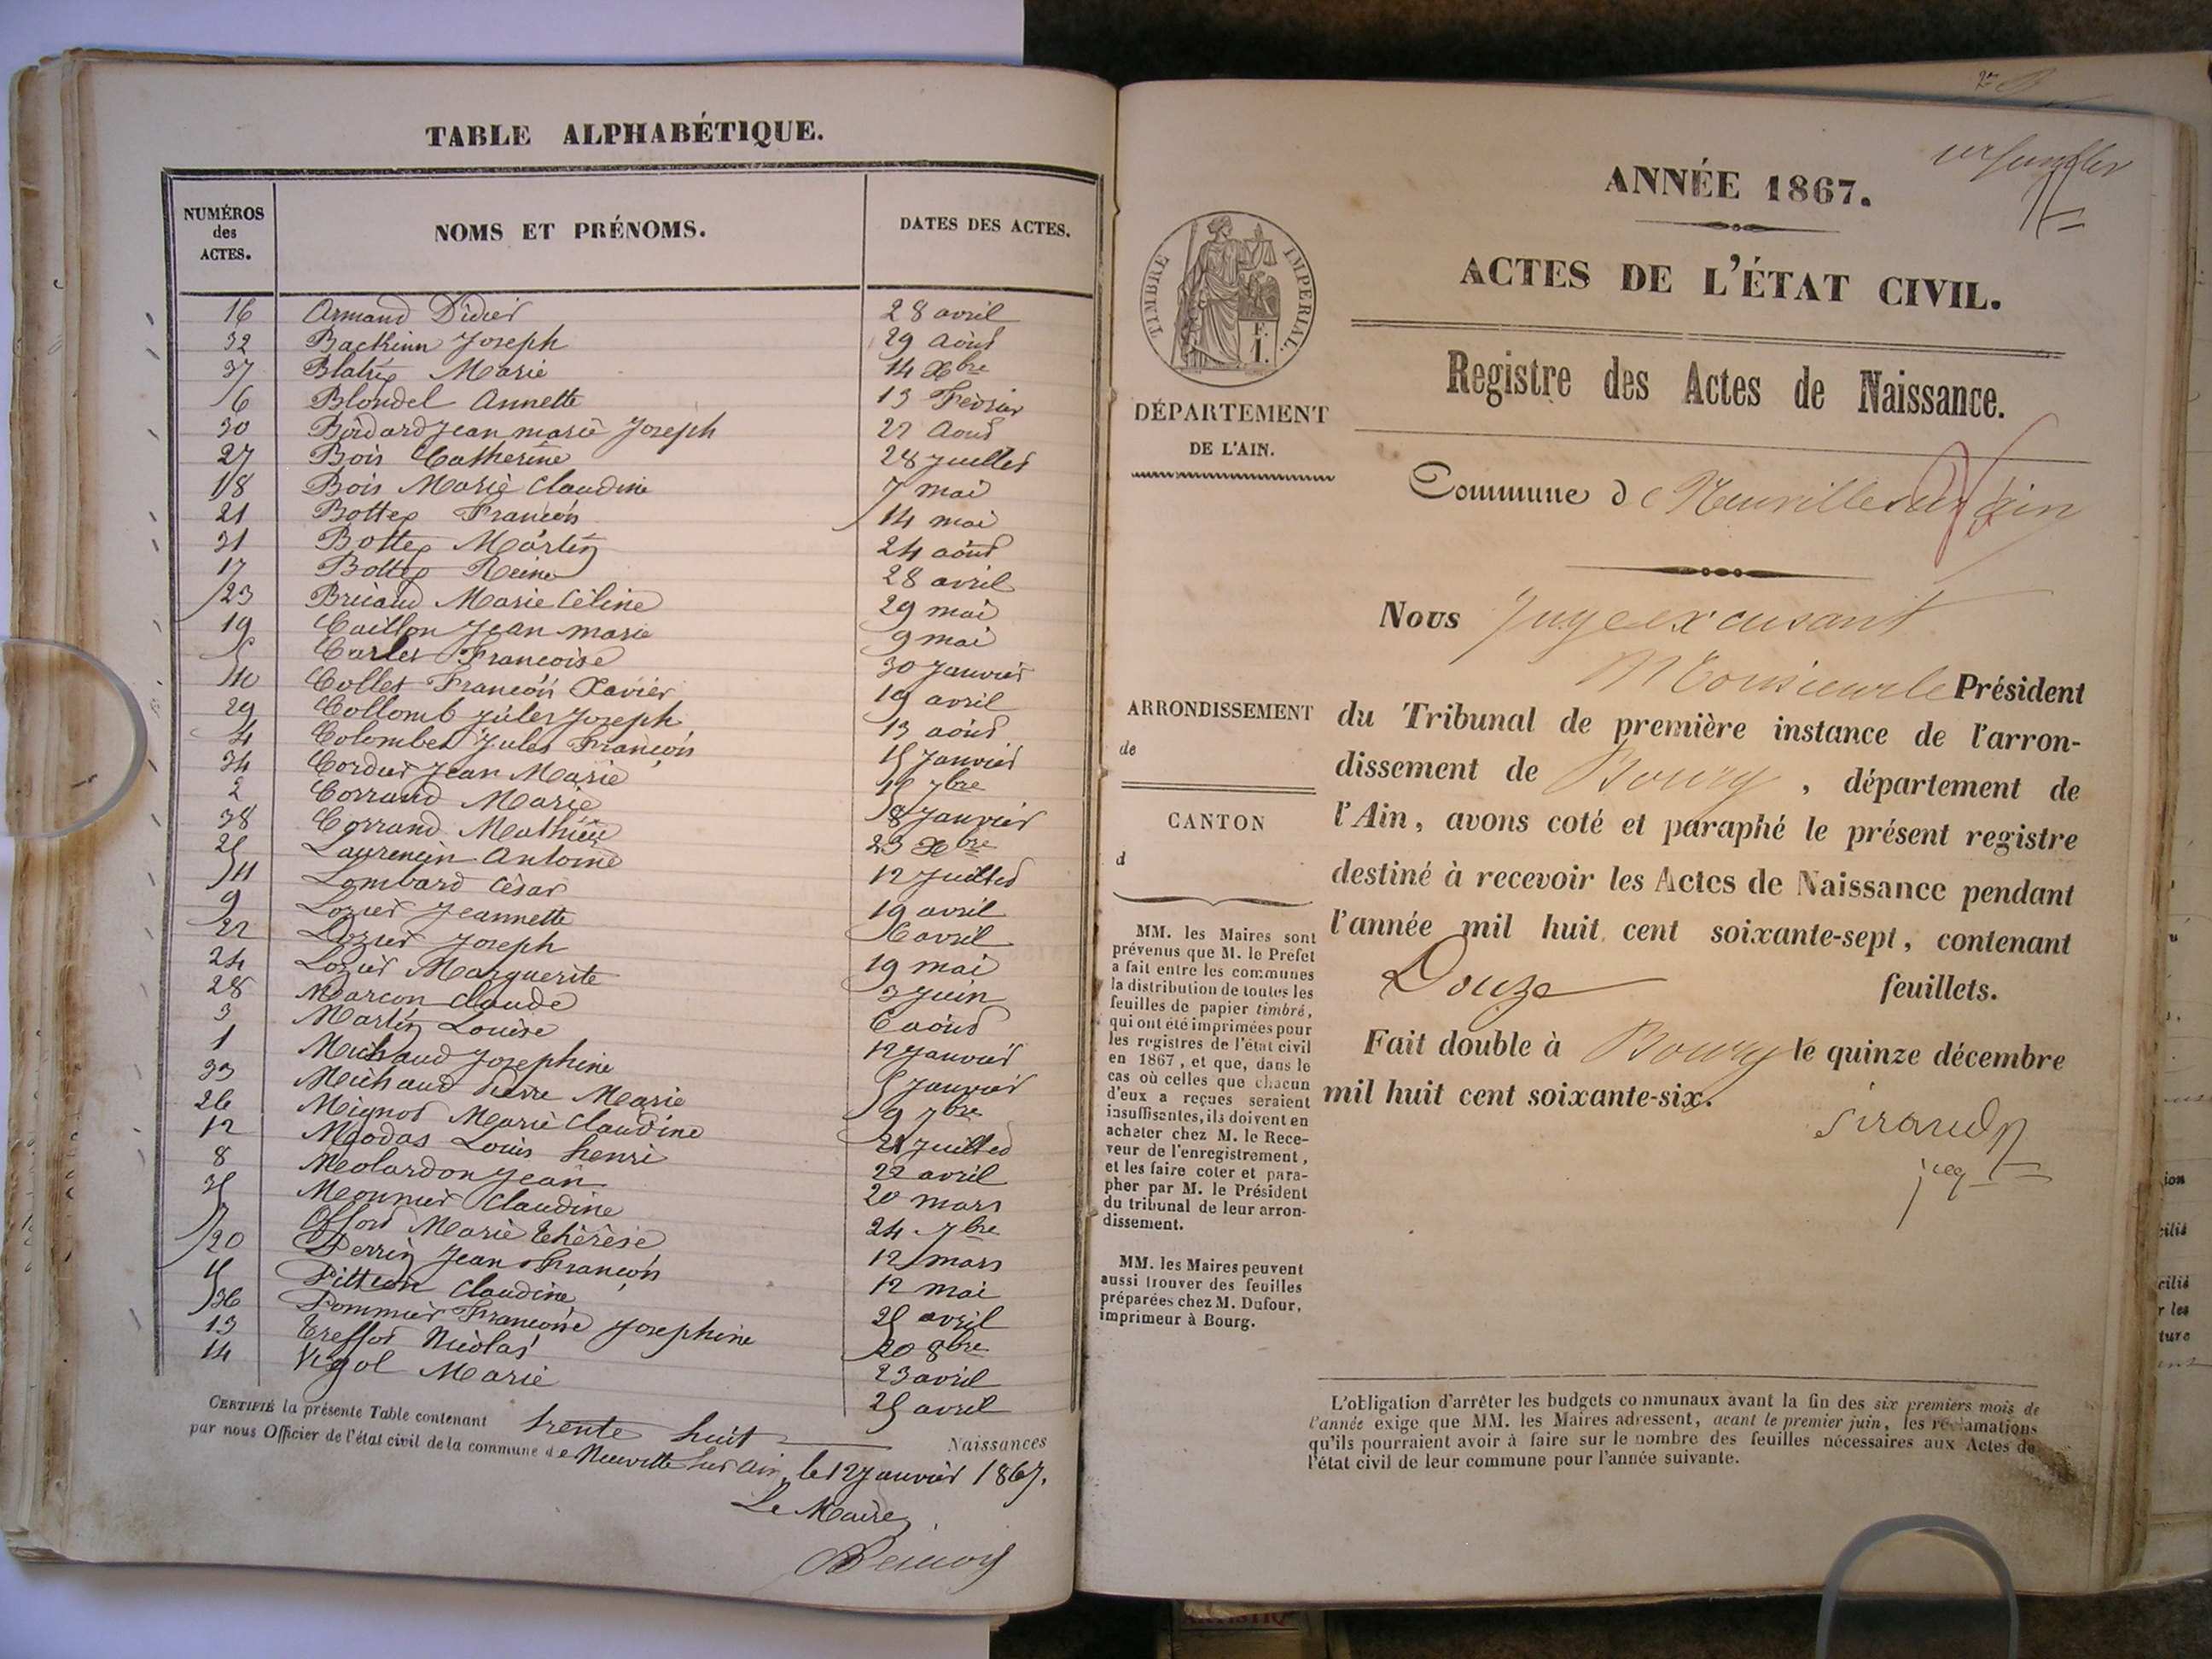 TABLE ALPHABÉTIQUE.
NUMÉROS des ACTES. NOMS ET PRÉNOMS. DATES DES ACTES.
16 Armand Didier 28 avril
32 Backinn Joseph 29 Août
37 Blatrix Marie 14 Xbre
6 Blondel Annette 13 Fevrier
30 Boidard Jean marie Joseph 22 Août
27 Bois Catherine 28 Juillet
18 Bois Marie Claudine 7 mai
21 Bottex François 14 mai
31 Bottex Martin 24 août
17 Bottex Reine 28 avril
23 Bruand Marie Céline 29 mai
19 Caillon Jean marie 9 mai
5 Carlet Françoise 30 Janvier
10 Collet François Xavier 19 avril
29 Collomb Jules Joseph 13 août
4 Colombet Jules François 15 Janvier
34 Cordier Jean Marie 15 7bre
2 Corrand Marie 8 Janvier
38 Corrand Mathieu 23 Xbre
25 Laurencin Antoine 12 Juillet
11 Lombard César 19 avril
9 Lozier Jeannette 6 avril
22 Lozier Joseph 19 mai
24 Lozier Marguerite 3 Juin
28 Marcon Claude 6 août
3 Martin Louise 12 Janvier
1 Michaud Josephine 5 Janvier
33 Michaud Pierre Marie 9 7bre
26 Mignot Marie Claudine 21 Juillet
12 Modas Louis henri 22 avril
8 Molardon Jean 20 mars
35 Mounier Claudine 24 7bre
7 Offord Marie thérèse 12 mars
20 Perrin Jean François 12 mai
15 Pitteon Claudine 25 avril
36 Pommier Françoise Josephine 20 8bre
13 Treffot Nicolas 23 avril
14 Vigol Marie 25 avril
CERTIFIÉ la présente Table contenant trente huit Naissances
par nous Officier de l'état civil de la commune de Neuville sur ain, le 12 Janvier 1867.
Le Maire
ANNÉE 1867.
ACTES DE L'ÉTAT CIVIL.
TIMBRE IMPERIAL.
F.
1.
Registre des Actes de Naissance.
DÉPARTEMENT
DE L'AIN.
Commune de Neuville sur Ain
Nous Juge excusant
Monsieur le Président
du Tribunal de première instance de l'arron-
dissement de Bourg, département de
l'Ain, avons coté et paraphé le présent registre
destiné à recevoir les Actes de Naissance pendant
l'année mil huit cent soixante-sept, contenant
Douze feuillets.
Fait double à Bourg le quinze décembre
mil huit cent soixante-six.
Sirand
ARRONDISSEMENT
de
CANTON
d
MM. les Maires sont
prévenus que M. le Préfet
a fait entre les communes
la distribution de toutes les
feuilles de papier timbré,
qui ont été imprimées pour
les registres de l'état civil
en 1867, et que, dans le
cas où celles que chacun
d'eux a reçues seraient
insuffisantes, ils doivent en
acheter chez M. le Rece-
veur de l'enregistrement,
et les faire coter et para-
pher par M. le Président
du tribunal de leur arron-
dissement.
MM. les Maires peuvent
aussi trouver des feuilles
préparées chez M. Dufour,
imprimeur à Bourg.
L'obligation d'arrêter les budgets communaux avant la fin des six premiers mois de
l'année exige que MM. les Maires adressent, avant le premier juin, les réclamations
qu'ils pourraient avoir à faire sur le nombre des feuilles nécessaires aux Actes de
l'état civil de leur commune pour l'année suivante.